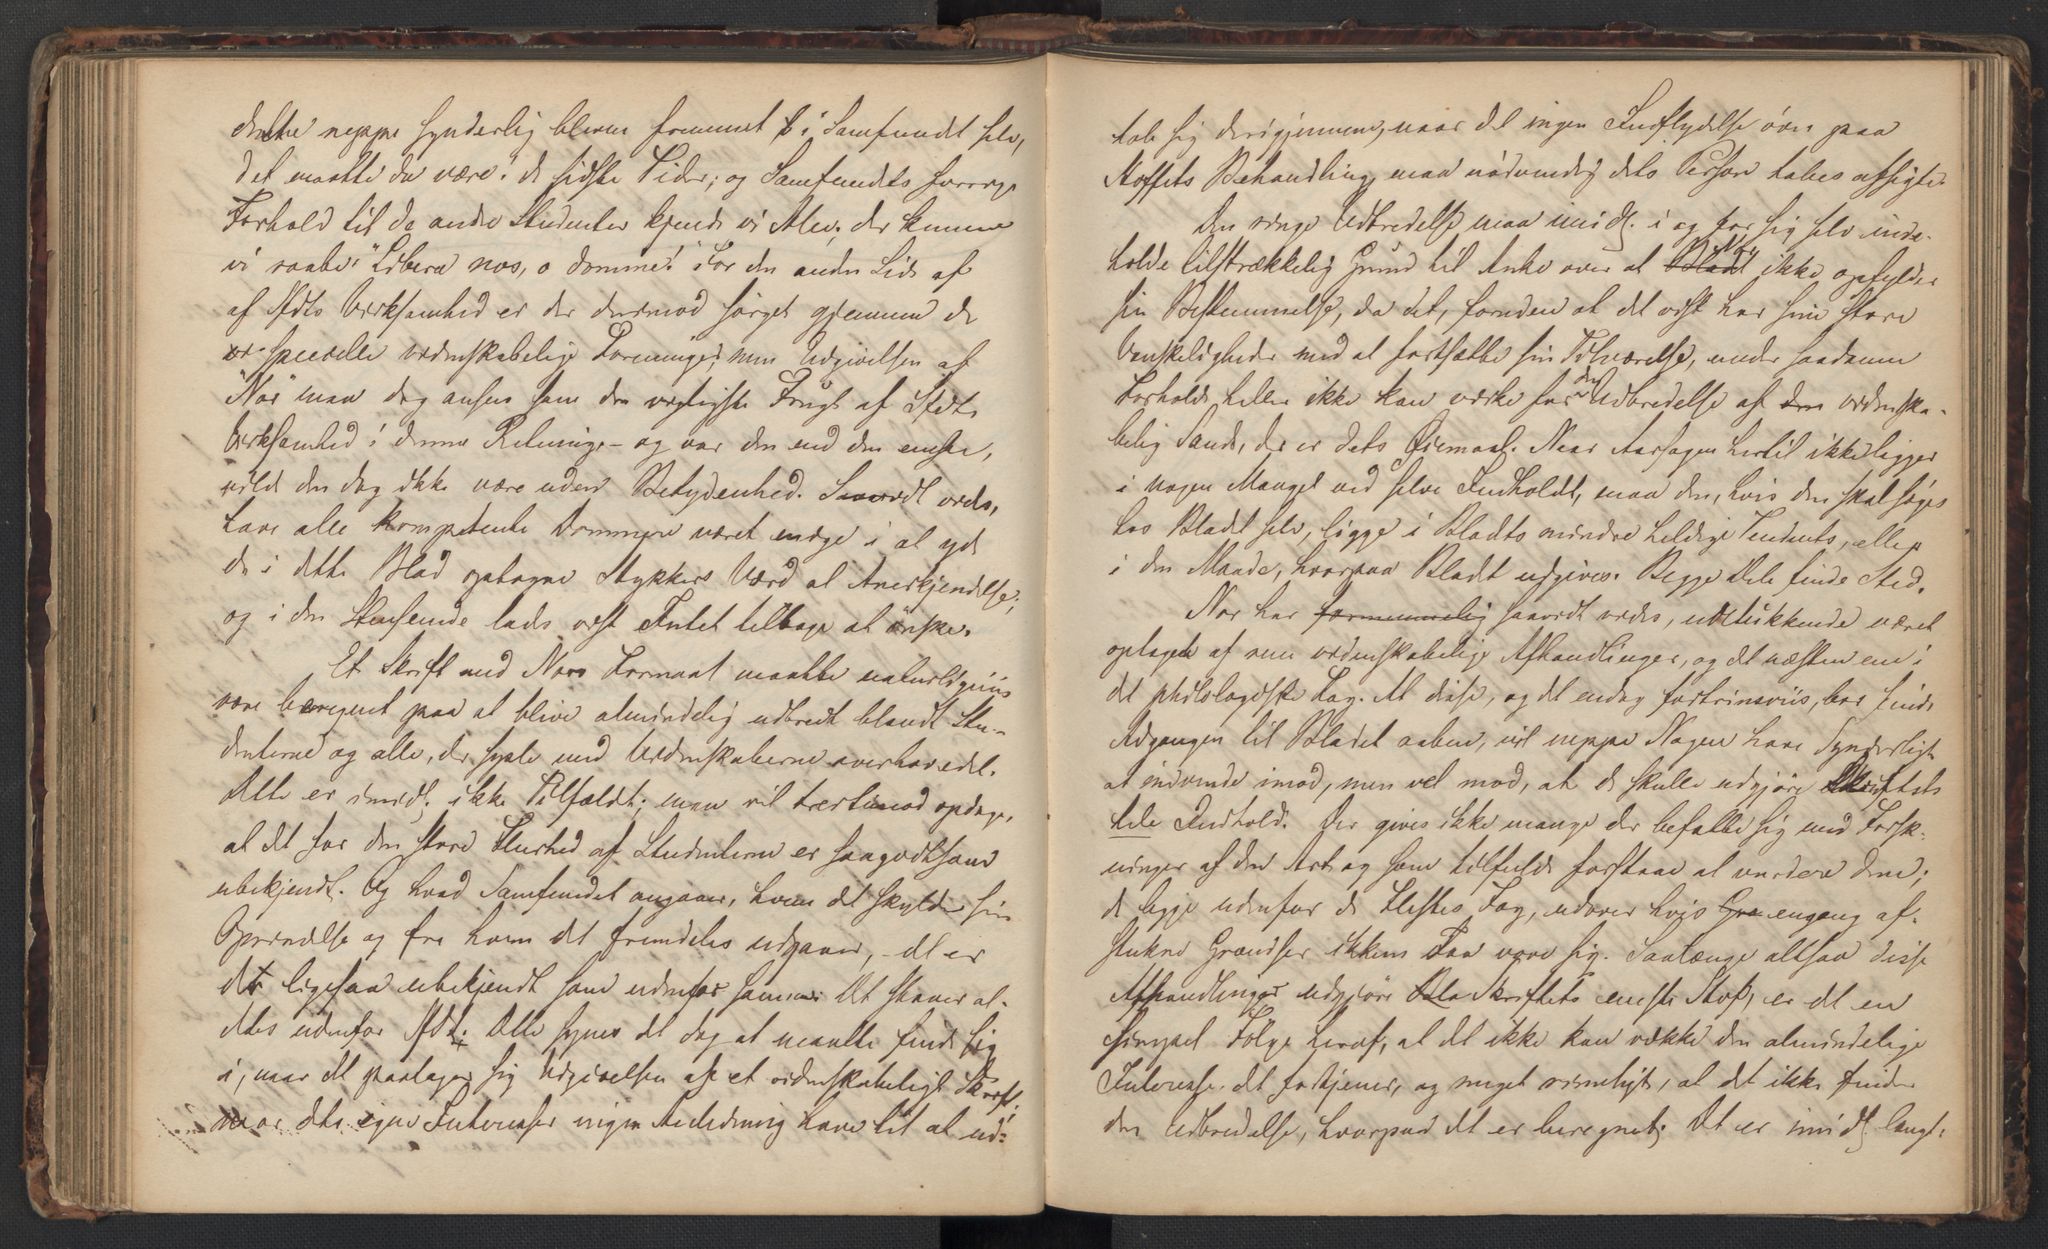 denne neppe synderlig bleven fremmet i Samfundet selv,
det maatte da være i de sidste Tider; og Samfundets sørgelige
Forhold til de andre Studenter kjende vi Alle, der kunne
vi raabe: "Libera nos, o domine!" For den anden Side af
af Sfdts Virksomhed er der derimod sørget gjennem de
specielle videnskabelige Foreninger, men Udgivelsen af
"Nor" maa dog ansees som den vigtigste Frugt af Sfdts
Virksomhed i denne Retning – og var den end den eneste,
vilde den dog ikke være uden Betydenhed. Saavidt vides,
have alle kompetente Dommere været enige i at yde
de i dette Blad optagne Stykkers Værd al Anerkjendelse;
og i den Henseende lades vist Intet tilbage at ønske.
Et Skrift med Nors Formaal maatte naturligviis
være beregnet paa at blive almindelig udbredt blandt Stu-
denterne og alle, der sysle med Videnskaberne overhovedet.
Dette er imidl. ikke Tilfældet; man vil tvertimod opdage,
at det for den store Fleerhed af Studenterne er saagodtsom
ubekjendt. Og hvad Samfundet angaaer, hvem det skylder sin
Oprindelse og fra hvem det fremdeles udgaaer, – det er
der ligesaa ubekjendt som udenfor samme. Det staaer al-
deles udenfor Sfdt. Dette synes det dog at maatte finde sig
i, naar det paatager sig Udgivelsen af et videnskabeligt Skrift;
naar dets egne Interesser ingen Anledning have til at ud-
tale sig derigjennem, naar det ingen Indflydelse øver paa
Stoffets Behandling, maa nødvendig dets Person tabes afsigte.
Den ringe Udbredelse maa imidl. i og for sig selv inde-
holde tilstrækkelig Grund til Anke over at Bladt Nor ikke opfylder
sin Bestemmelse, da det, foruden at det vist har sine store
Vanskeligheder med at fortsætte sin Tilværelse, under saadanne
Forholde heller ikke kan virke for den Udbredelse af den videnska-
belig Sands, der er dets Øiemaal. Naar Aarsagen hertil ikke ligger
i nogen Mangel ved selve Indholdt, maa den, hvis den skal søges
hos Bladet selv, ligge i Bladets mindre heldige Tendents, eller
i den Maade, hvorpaa Bladet udgives. Begge Dele finde Sted.
Nor har fornemmelig saavidt vides, udelukkende været
optaget af rene videnskabelige Afhandlinger, og det næsten ene i
det philologiske Fag. At disse, og det endog fortrinsviis, bør finde
Adgangen til Bladet aaben, vil neppe Nogen have Synderligt
at indvende imod, men vel mod, at de skulle udgjøre Skriftets
hele Indhold. Der gives ikke mange der befatte sig med Forsk-
ninger af den Art og som tilfulde forstaae at vurdere dem;
de ligge udenfor de Flestes Fag, udover hvis Gra engang af-
stukne Grændser ikkun Faa vove sig. Saalænge altsaa disse
Afhandlinger udgjøre Bla Skriftets eneste Stof, er det en
simpel Følge heraf, at det ikke kan vække den almindelige
Interesse det fortjener, og meget rimeligt, at det ikke finder
den Udbredelse, hvorpaa det er beregnet. Det er imidl. langt-